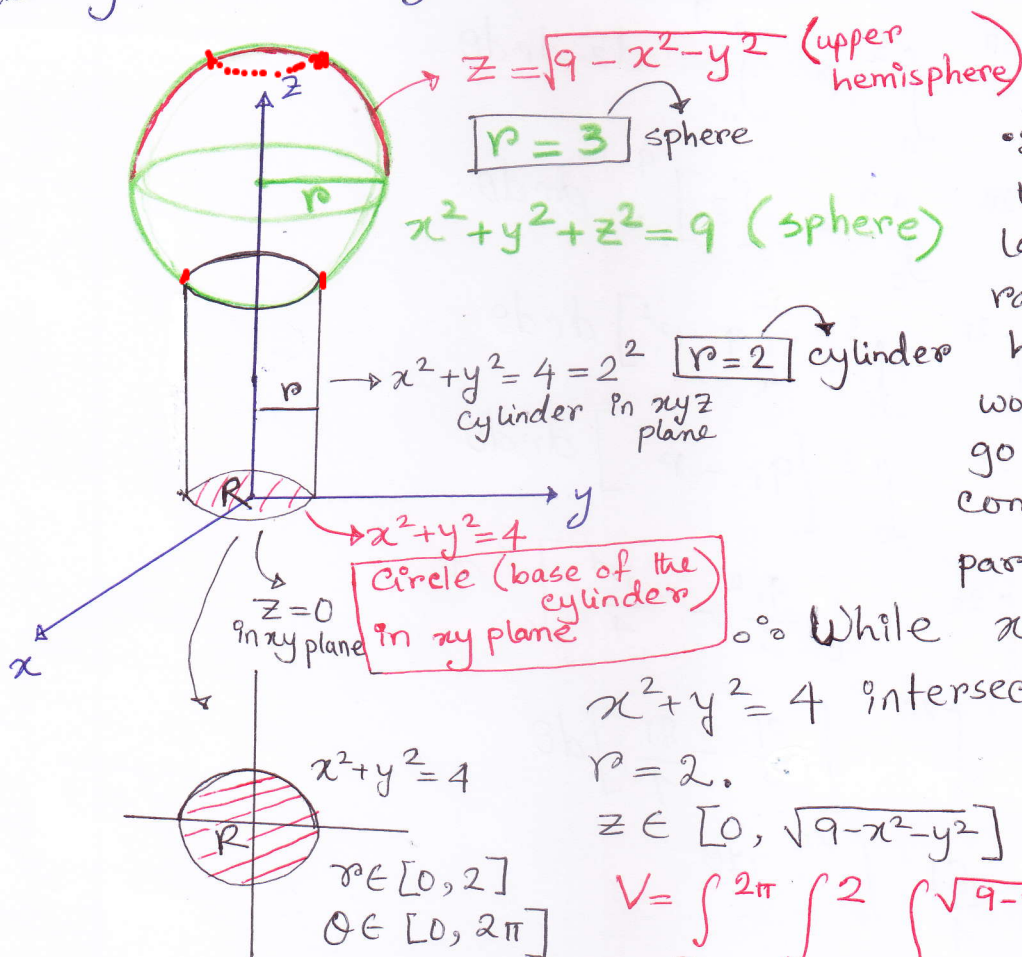 z = √9 - x² - y² (upper hemisphere)
z
r = 3 sphere
r
x² + y² + z² = 9 (sphere)
r
→ x² + y² = 4 = 2² r = 2 cylinder
cylinder in xyz plane
wo
go
con
par
R
y
x² + y² = 4
Circle (base of the cylinder)
in xy plane
z = 0
in xy plane
x
∴ While x
x² + y² = 4 intersec
r = 2.
x² + y² = 4
R
z ∈ [0, √9-x²-y²]
r ∈ [0, 2]
θ ∈ [0, 2π]
V = ∫ 2π ∫ 2 ∫ √9-